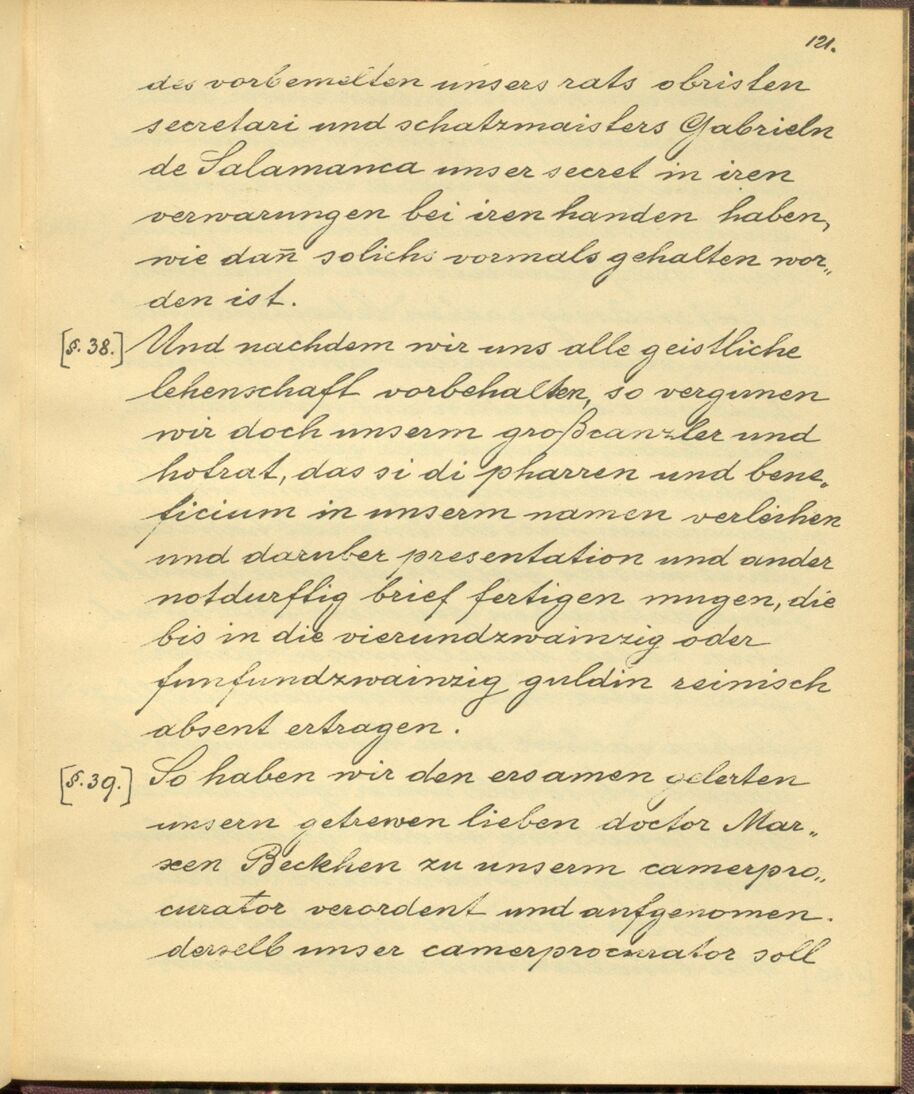 121.
des vorbemelten unsers rats obristen
secretari und schatzmaisters Gabrieln
de Salamanca unser secret in iren
verwarungen bei iren handen haben,
wie dan̄ solichs vormals gehalten wor„
den ist.
[§. 38.] Und nachdem wir uns alle geistliche
lehenschaft vorbehalten, so vergunen
wir doch unserm großcanzler und
hofrat, das si di pharren und bene„
ficium in unserm namen verleihen
und daruber presentation und ander
notdurftig brief fertigen mugen, die
bis in die vierundzwainzig oder
funfundzwainzig guldin reinisch
absent ertragen.
[§. 39.] So haben wir den ersamen gelerten
unsern getrewen lieben doctor Mar„
xen Beckhen zu unserm camerpro„
curator verordent und aufgenomen.
derselb unser camerprocurator soll